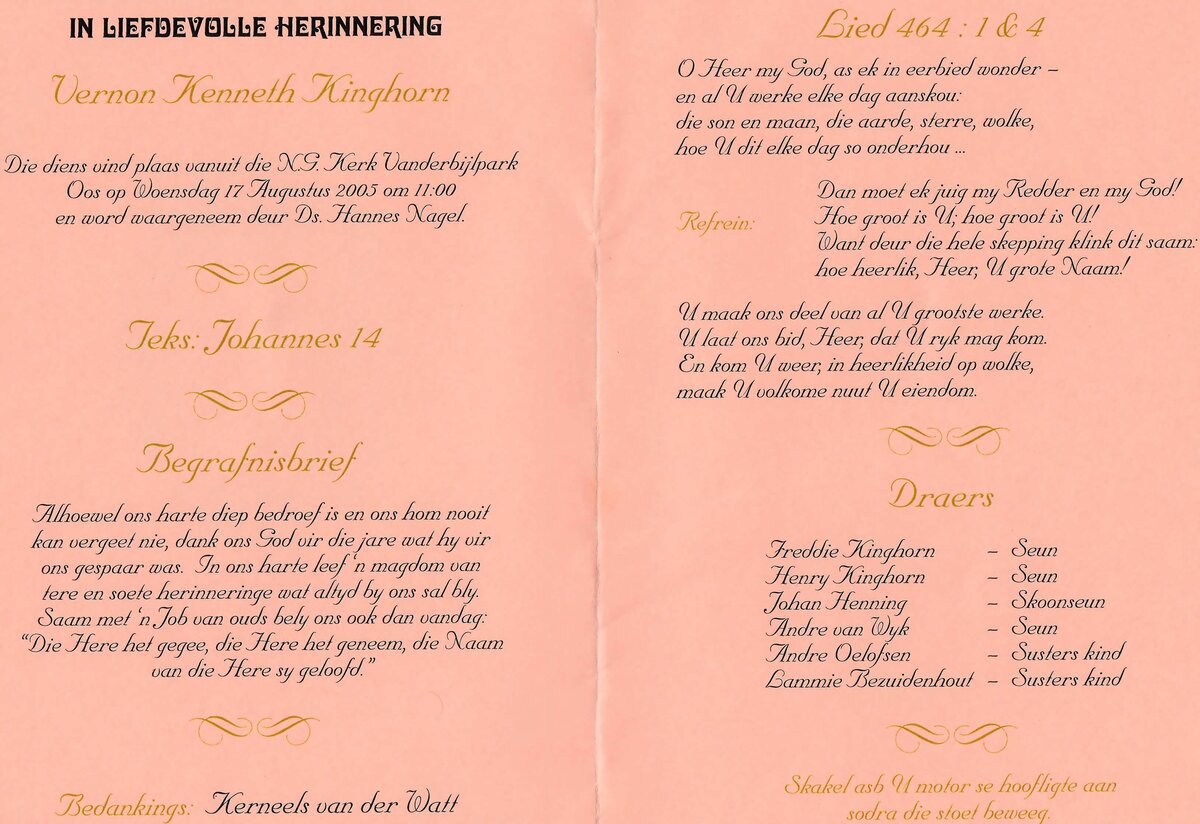 IN LIEFDEVOLLE HERINNERING
Vernon Kenneth Kinghorn
Die diens vind plaas vanuit die N.G. Kerk Vanderbijlpark
Oos op Woensdag 17 Augustus 2005 om 11:00
en word waargeneem deur Ds. Hannes Nagel.
Teks: Johannes 14
Begrafnisbrief
Alhoewel ons harte diep bedroef is en ons hom nooit
kan vergeet nie, dank ons God vir die jare wat hy vir
ons gespaar was. In ons harte leef 'n magdom van
tere en soete herinneringe wat altyd by ons sal bly.
Saam met 'n Job van ouds bely ons ook dan vandag:
"Die Here het gegee, die Here het geneem, die Naam
van die Here sy geloofd."
Bedankings: Kerneels van der Watt
Lied 464 : 1 & 4
O Heer my God, as ek in eerbied wonder –
en al U werke elke dag aanskou:
die son en maan, die aarde, sterre, wolke,
hoe U dit elke dag so onderhou ...
Refrein:
Dan moet ek juig my Redder en my God!
Hoe groot is U; hoe groot is U!
Want deur die hele skepping klink dit saam:
hoe heerlik, Heer, U grote Naam!
U maak ons deel van al U grootste werke.
U laat ons bid, Heer, dat U ryk mag kom.
En kom U weer, in heerlikheid op wolke,
maak U volkome nuut U eiendom.
Draers
Freddie Kinghorn – Seun
Henry Kinghorn – Seun
Johan Henning – Skoonseun
Andre van Wyk – Seun
Andre Oelofsen – Susters kind
Lammie Bezuidenhout – Susters kind
Skakel asb U motor se hoofligte aan
sodra die stoet beweeg.